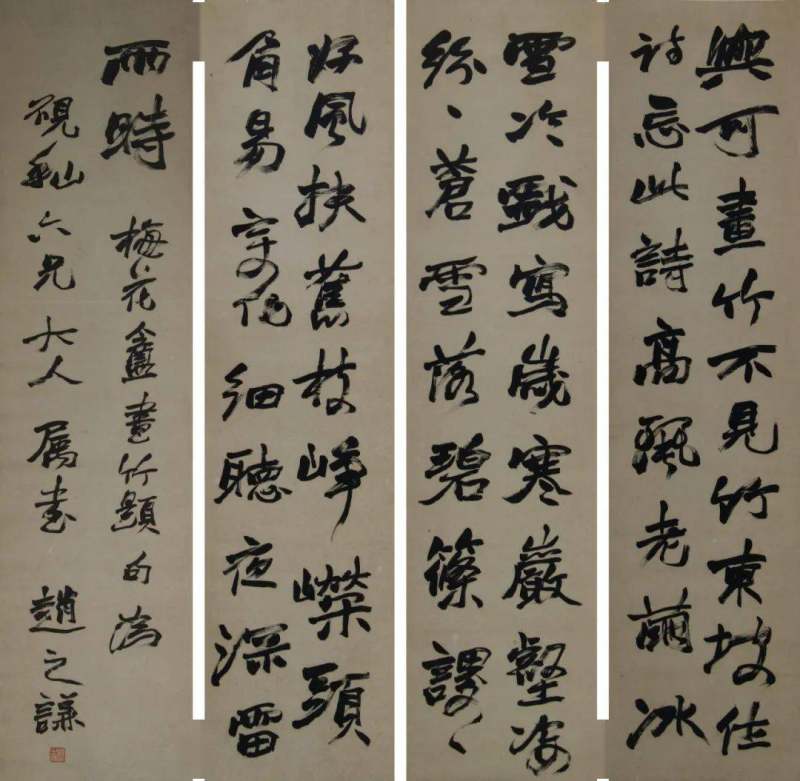 與可畫竹不見竹東坡作
詩忘此詩高麗老繭冰
雪冷戲寫歲寒巖壑姿
紛〻蒼雪落碧篠謖〻
好風扶舊枝崢嶸頭
角易變化細聽夜深雷
雨時 梅花盦畫竹題句為
硯秈六兄大人屬書 趙之謙